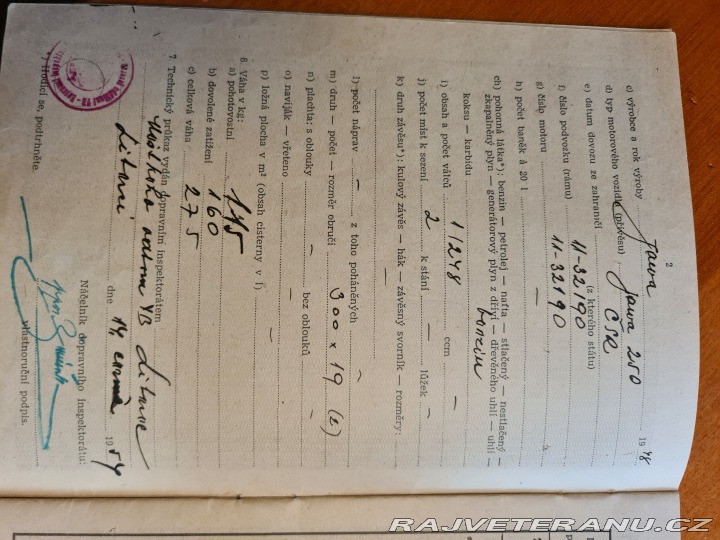 2
c) výrobce a rok výroby Jawa 1948
d) typ motorového vozidla (přívěsu) Jawa 250
e) datum dovozu ze zahraničí ČSR
(z kterého státu)
f) číslo podvozku (rámu) 11-32190
g) číslo motoru 11-32190
h) počet baněk à 20 l —
ch) pohonná látka*): benzin — petrolej — nafta — stlačený — nestlačený —
zkapalněný plyn — generátorový plyn z dříví — dřevěného uhlí — uhlí —
koksu — karbidu benzin
i) obsah a počet válců 1/248 ccm
j) počet míst k sezení 2 k stání — lůžek —
k) druh závěsu*): kulový závěs — hák — závěsný svorník — rozměry:
l) počet náprav — z toho poháněných —
m) druh — počet — rozměr obručí 300 x 19 (2)
n) plachta: s oblouky — bez oblouků —
o) naviják — vřeteno —
p) ložná plocha v m² (obsah cisterny v l) —
6. Váha v kg:
a) pohotovostní 115
b) dovolené zatížení 160
c) celková váha 275
7. Technický průkaz vydán dopravním inspektorátem
VB
dne 14. 1954
Náčelník dopravního inspektorátu:
vlastnoruční podpis.
*) Hodící se, podtrhněte
RAJVETERANU.CZ